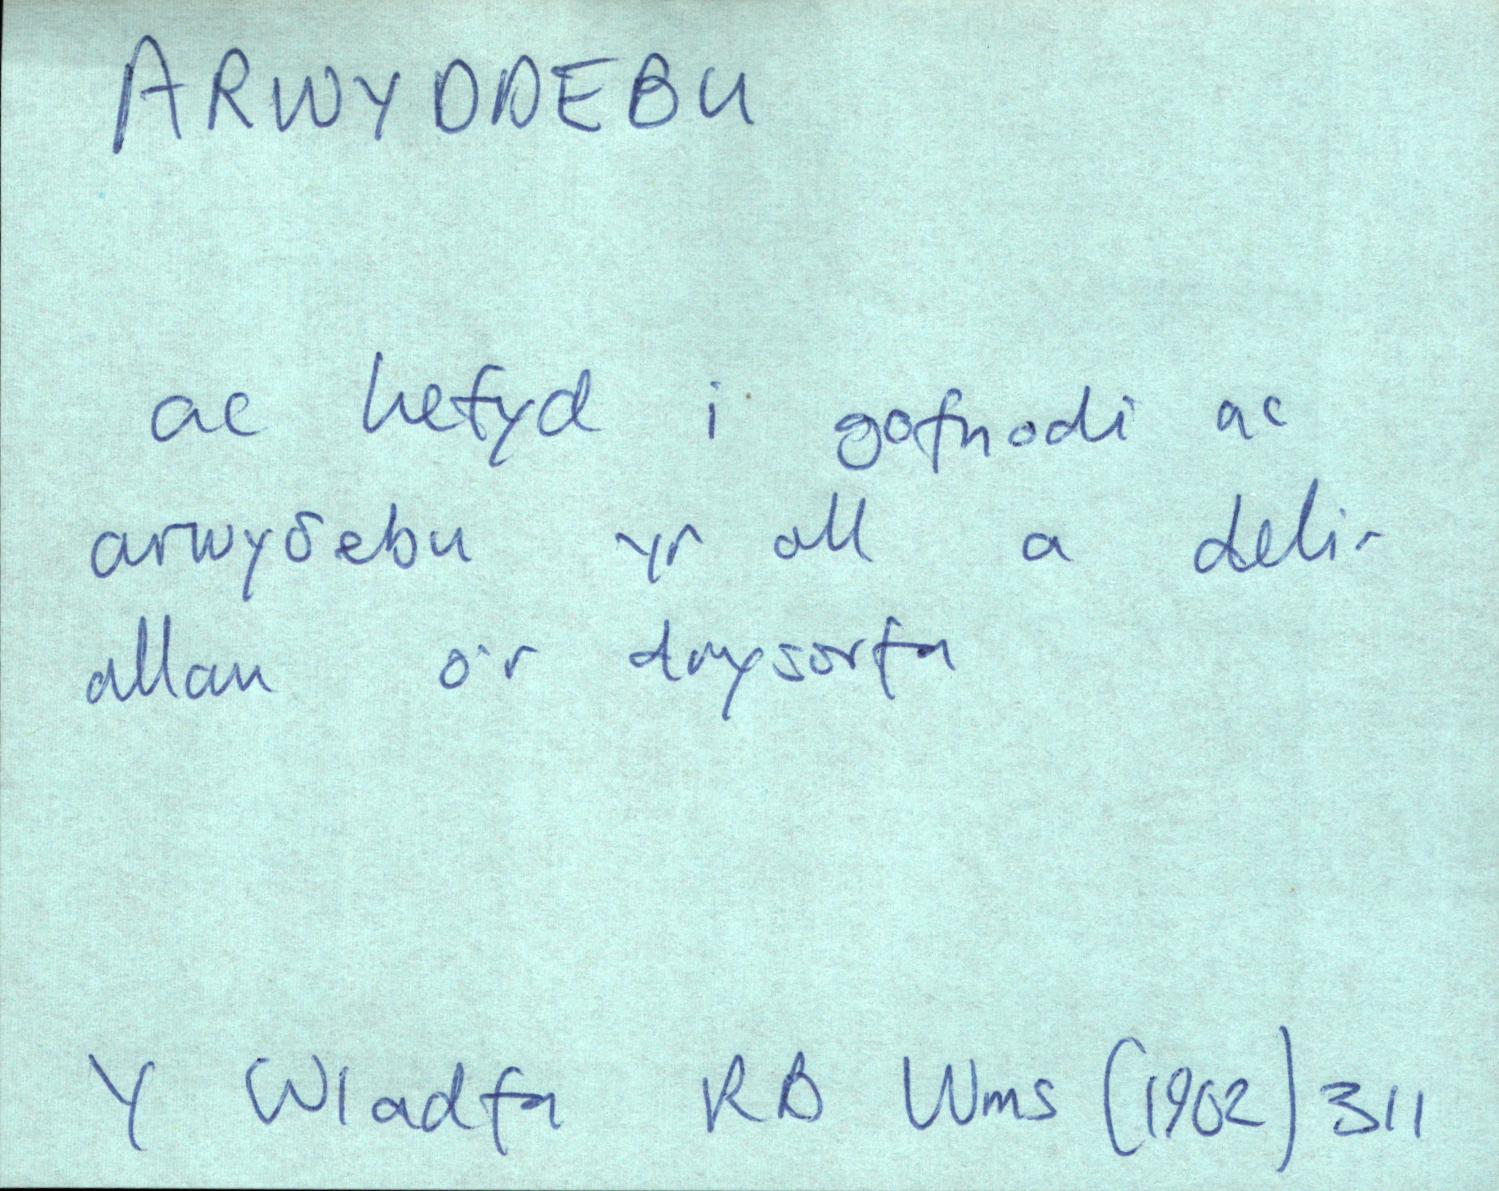 ARWYDDEBU
ac hefyd i gofnodi ac
arwyδebu yr oll a delir
allan o'r drysorfa
Y Wladfa RB Wms (1962) 311